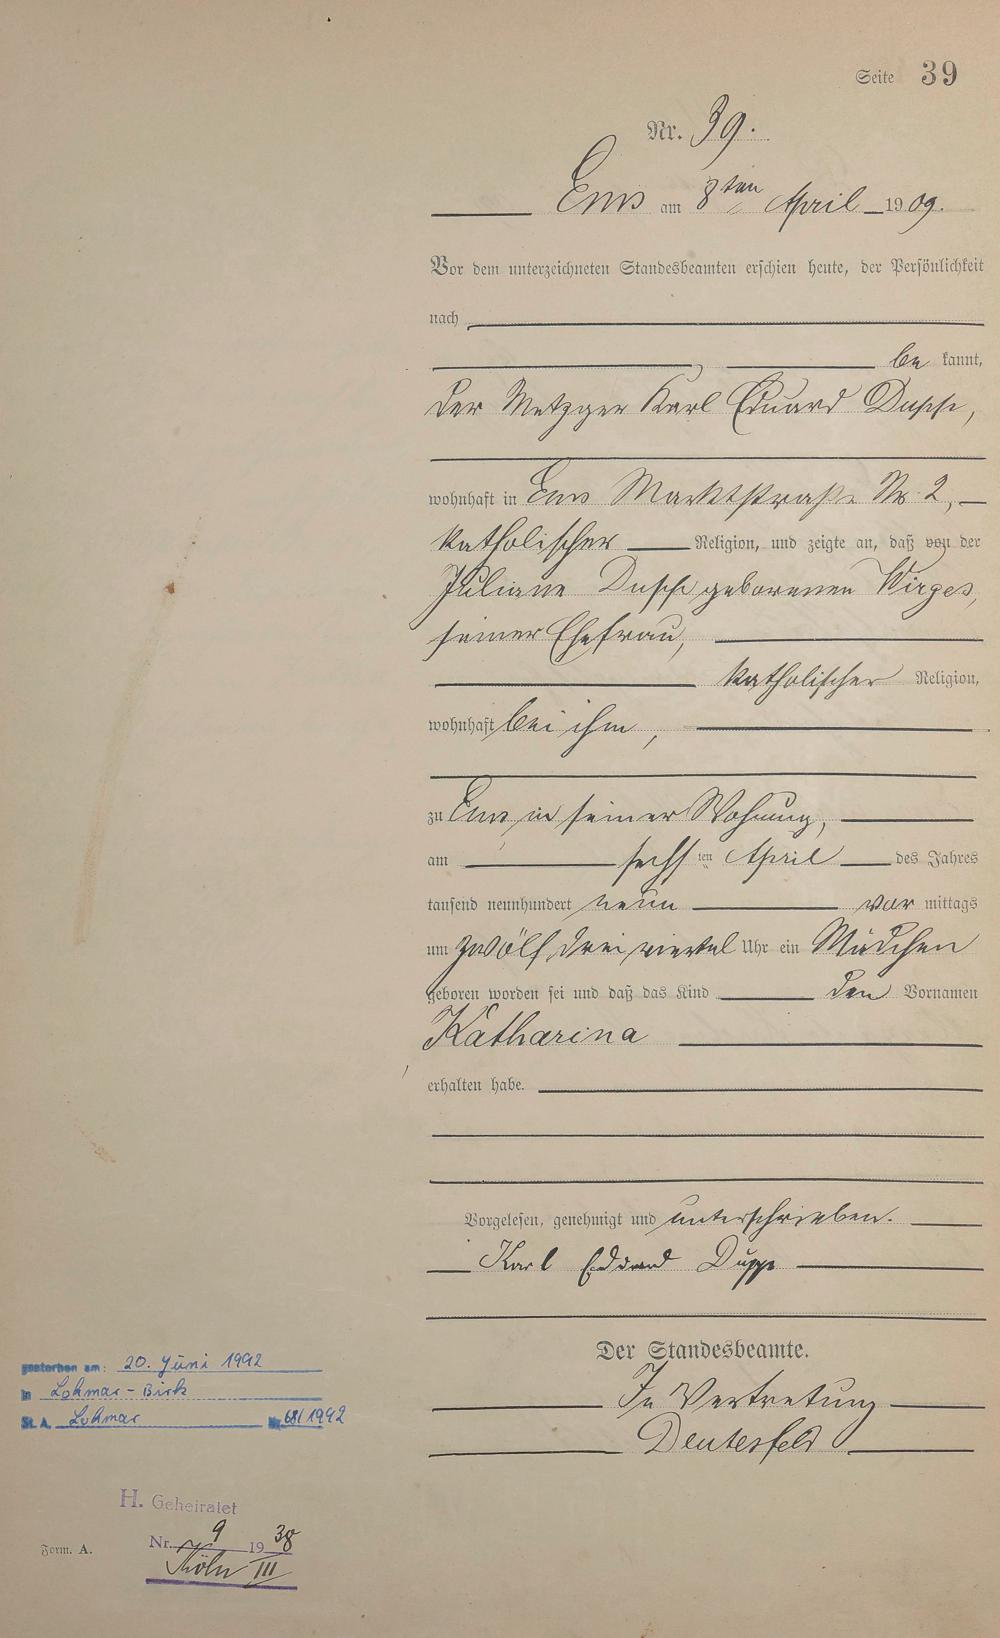 Seite 39
Nr. 39.
Ems am 8ten April 1909.
Vor dem unterzeichneten Standesbeamten erschien heute, der Persönlichkeit
nach
be kannt,
der Metzger Karl Eduard Duppe,
wohnhaft in Ems Marktstraße Nr. 2,
katholischer Religion, und zeigte an, daß von der
Juliane Duppe geborenen Wirges,
seiner Ehefrau,
katholischer Religion,
wohnhaft bei ihm,
zu Ems in seiner Wohnung,
am sechsten April des Jahres
tausend neunhundert neun vormittags
um zwölf drei viertel Uhr ein Mädchen
geboren worden sei und daß das Kind den Vornamen
Katharina
erhalten habe.
Vorgelesen, genehmigt und unterschrieben.
Karl Eduard Duppe
Der Standesbeamte.
In Vertretung
gestorben am: 20. Juni 1992
in Lohmar - Birk
St. A. Lohmar Nr. 68/1992
H. Geheiratet
Nr. 9 1938
Köln III
Form. A.